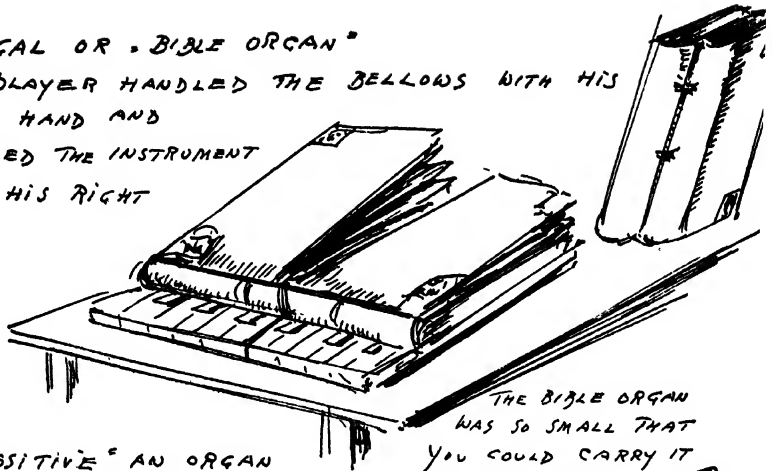 GAL OR "BIBLE ORGAN"
PLAYER HANDLED THE BELLOWS WITH HIS
HAND AND
ED THE INSTRUMENT
HIS RIGHT
THE BIBLE ORGAN
WAS SO SMALL THAT
YOU COULD CARRY IT
SITIVE" AN ORGAN